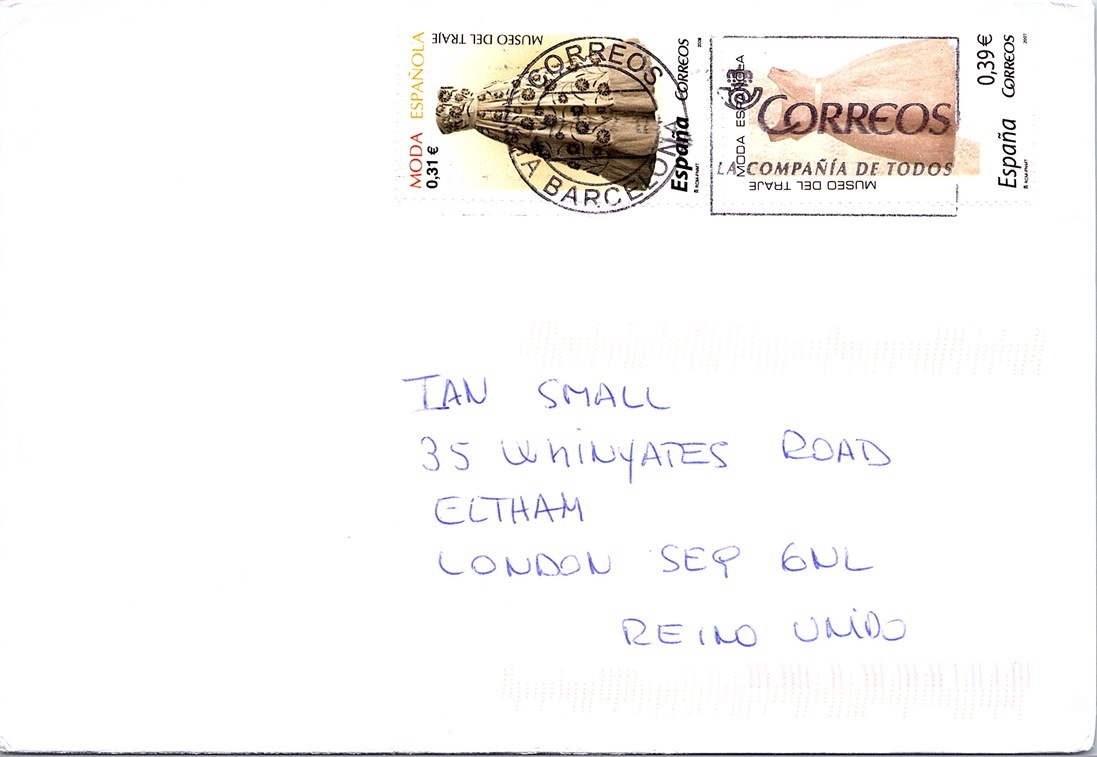 MODA ESPAÑOLA
0,31 €
MUSEO DEL TRAJE
España CORREOS
CORREOS
LA BARCELONA
MODA ESPAÑOLA
MUSEO DEL TRAJE
0,39 €
España CORREOS
2007
CORREOS
LA COMPAÑÍA DE TODOS
IAN SMALL
35 WHINYATES ROAD
ELTHAM
LONDON SE9 6NL
REINO UNIDO